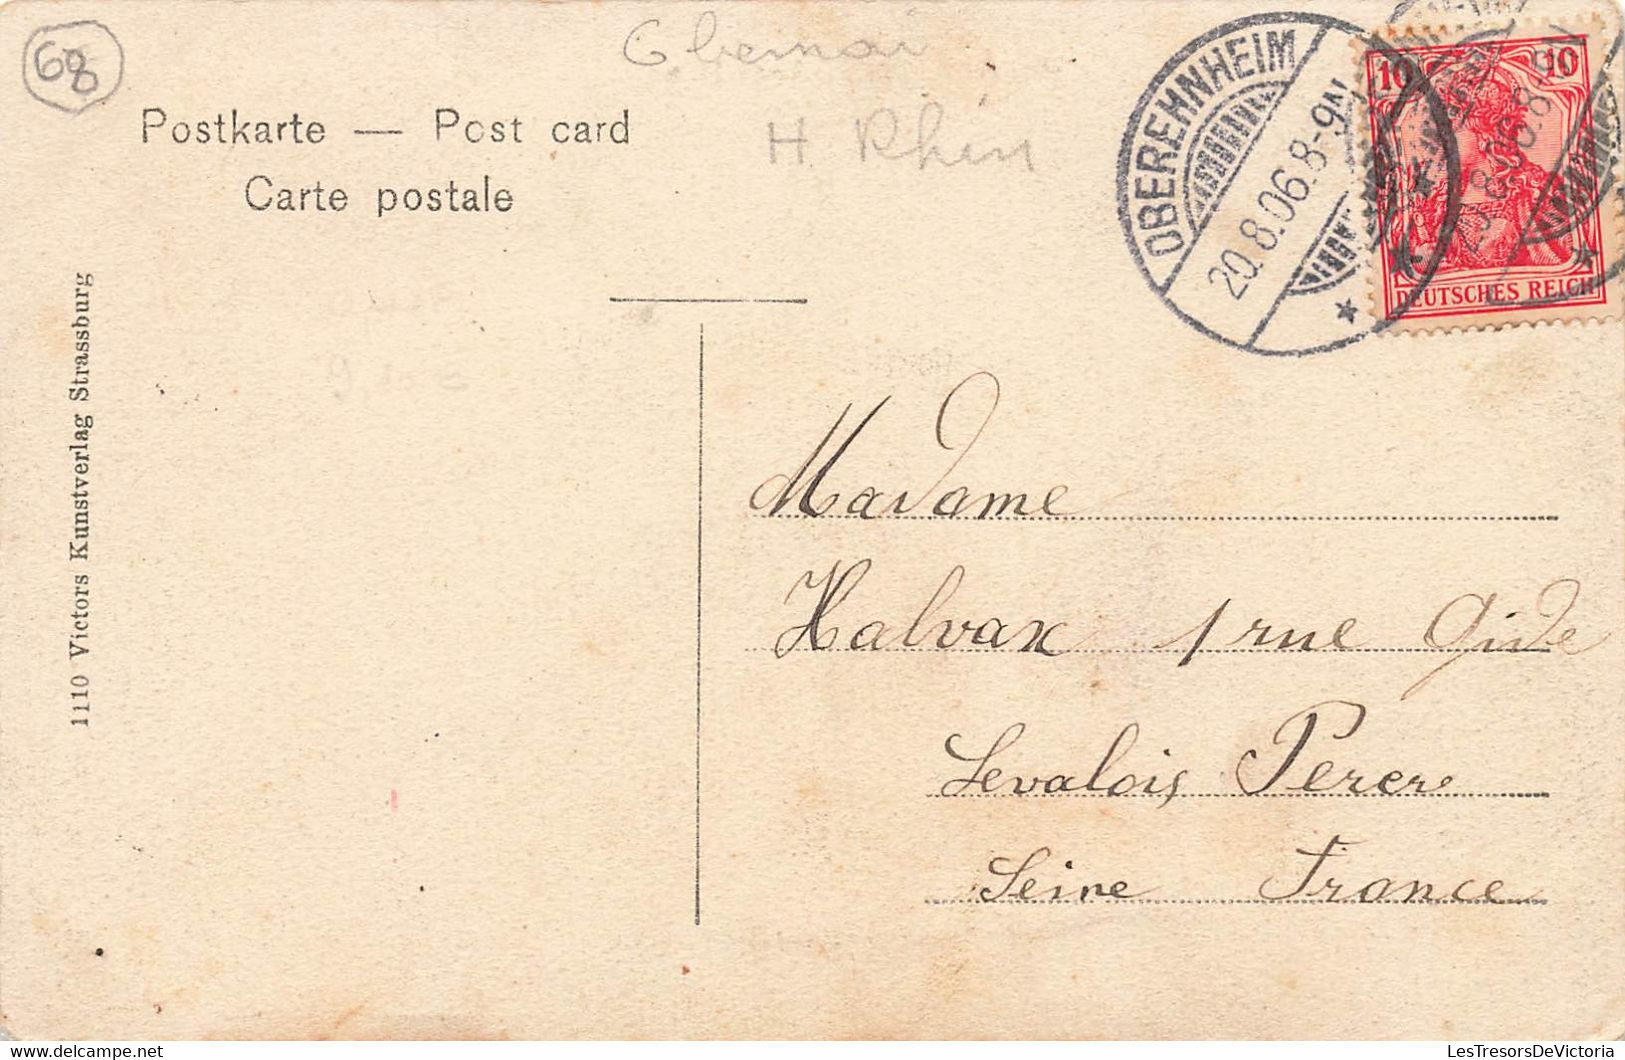 68
Obernai
H Rhin
Postkarte — Post card
Carte postale
OBEREHNHEIM
20.8.06.8-9N
10 10
DEUTSCHES REICH
1110 Victors Kunstverlag Strassburg
Madame
Halvax 1 rue Gide
Levalois Perere
Seine France
LesTresorsDeVictoria